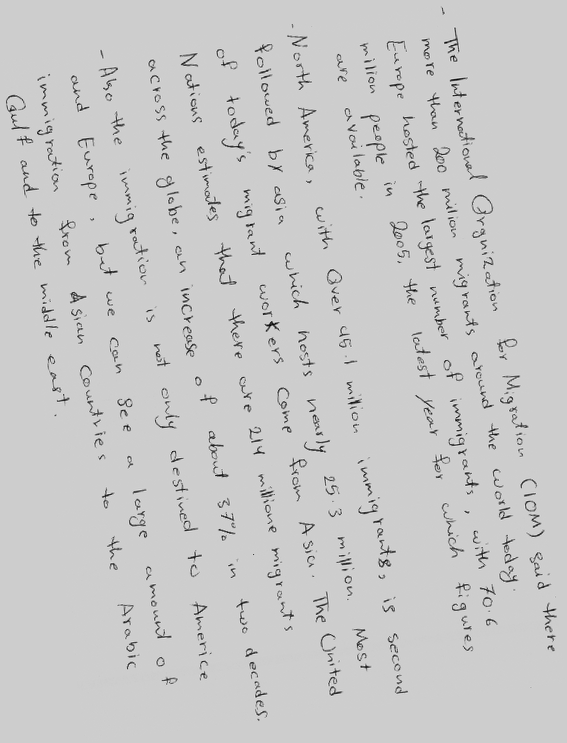 - The International Orgnization for Migration (IOM) said there
more than 200 million migrants around the world today.
Europe hosted the largest number of immigrants, with 70.6
million people in 2005, the latest year for which figures
are available.
- North America, with over 45.1 million immigrants, is second
followed by asia which hosts nearly 25.3 million. Most
of today's migrant workers come from Asia. The United
Nations estimates that there are 214 millione migrants
across the globe, an increase of about 37% in two decades.
- Also the immigration is not only destined to Americe
and Europe, but we can see a large amount of
immigration from Asian Countries to the Arabic
Gulf and to the middle east.